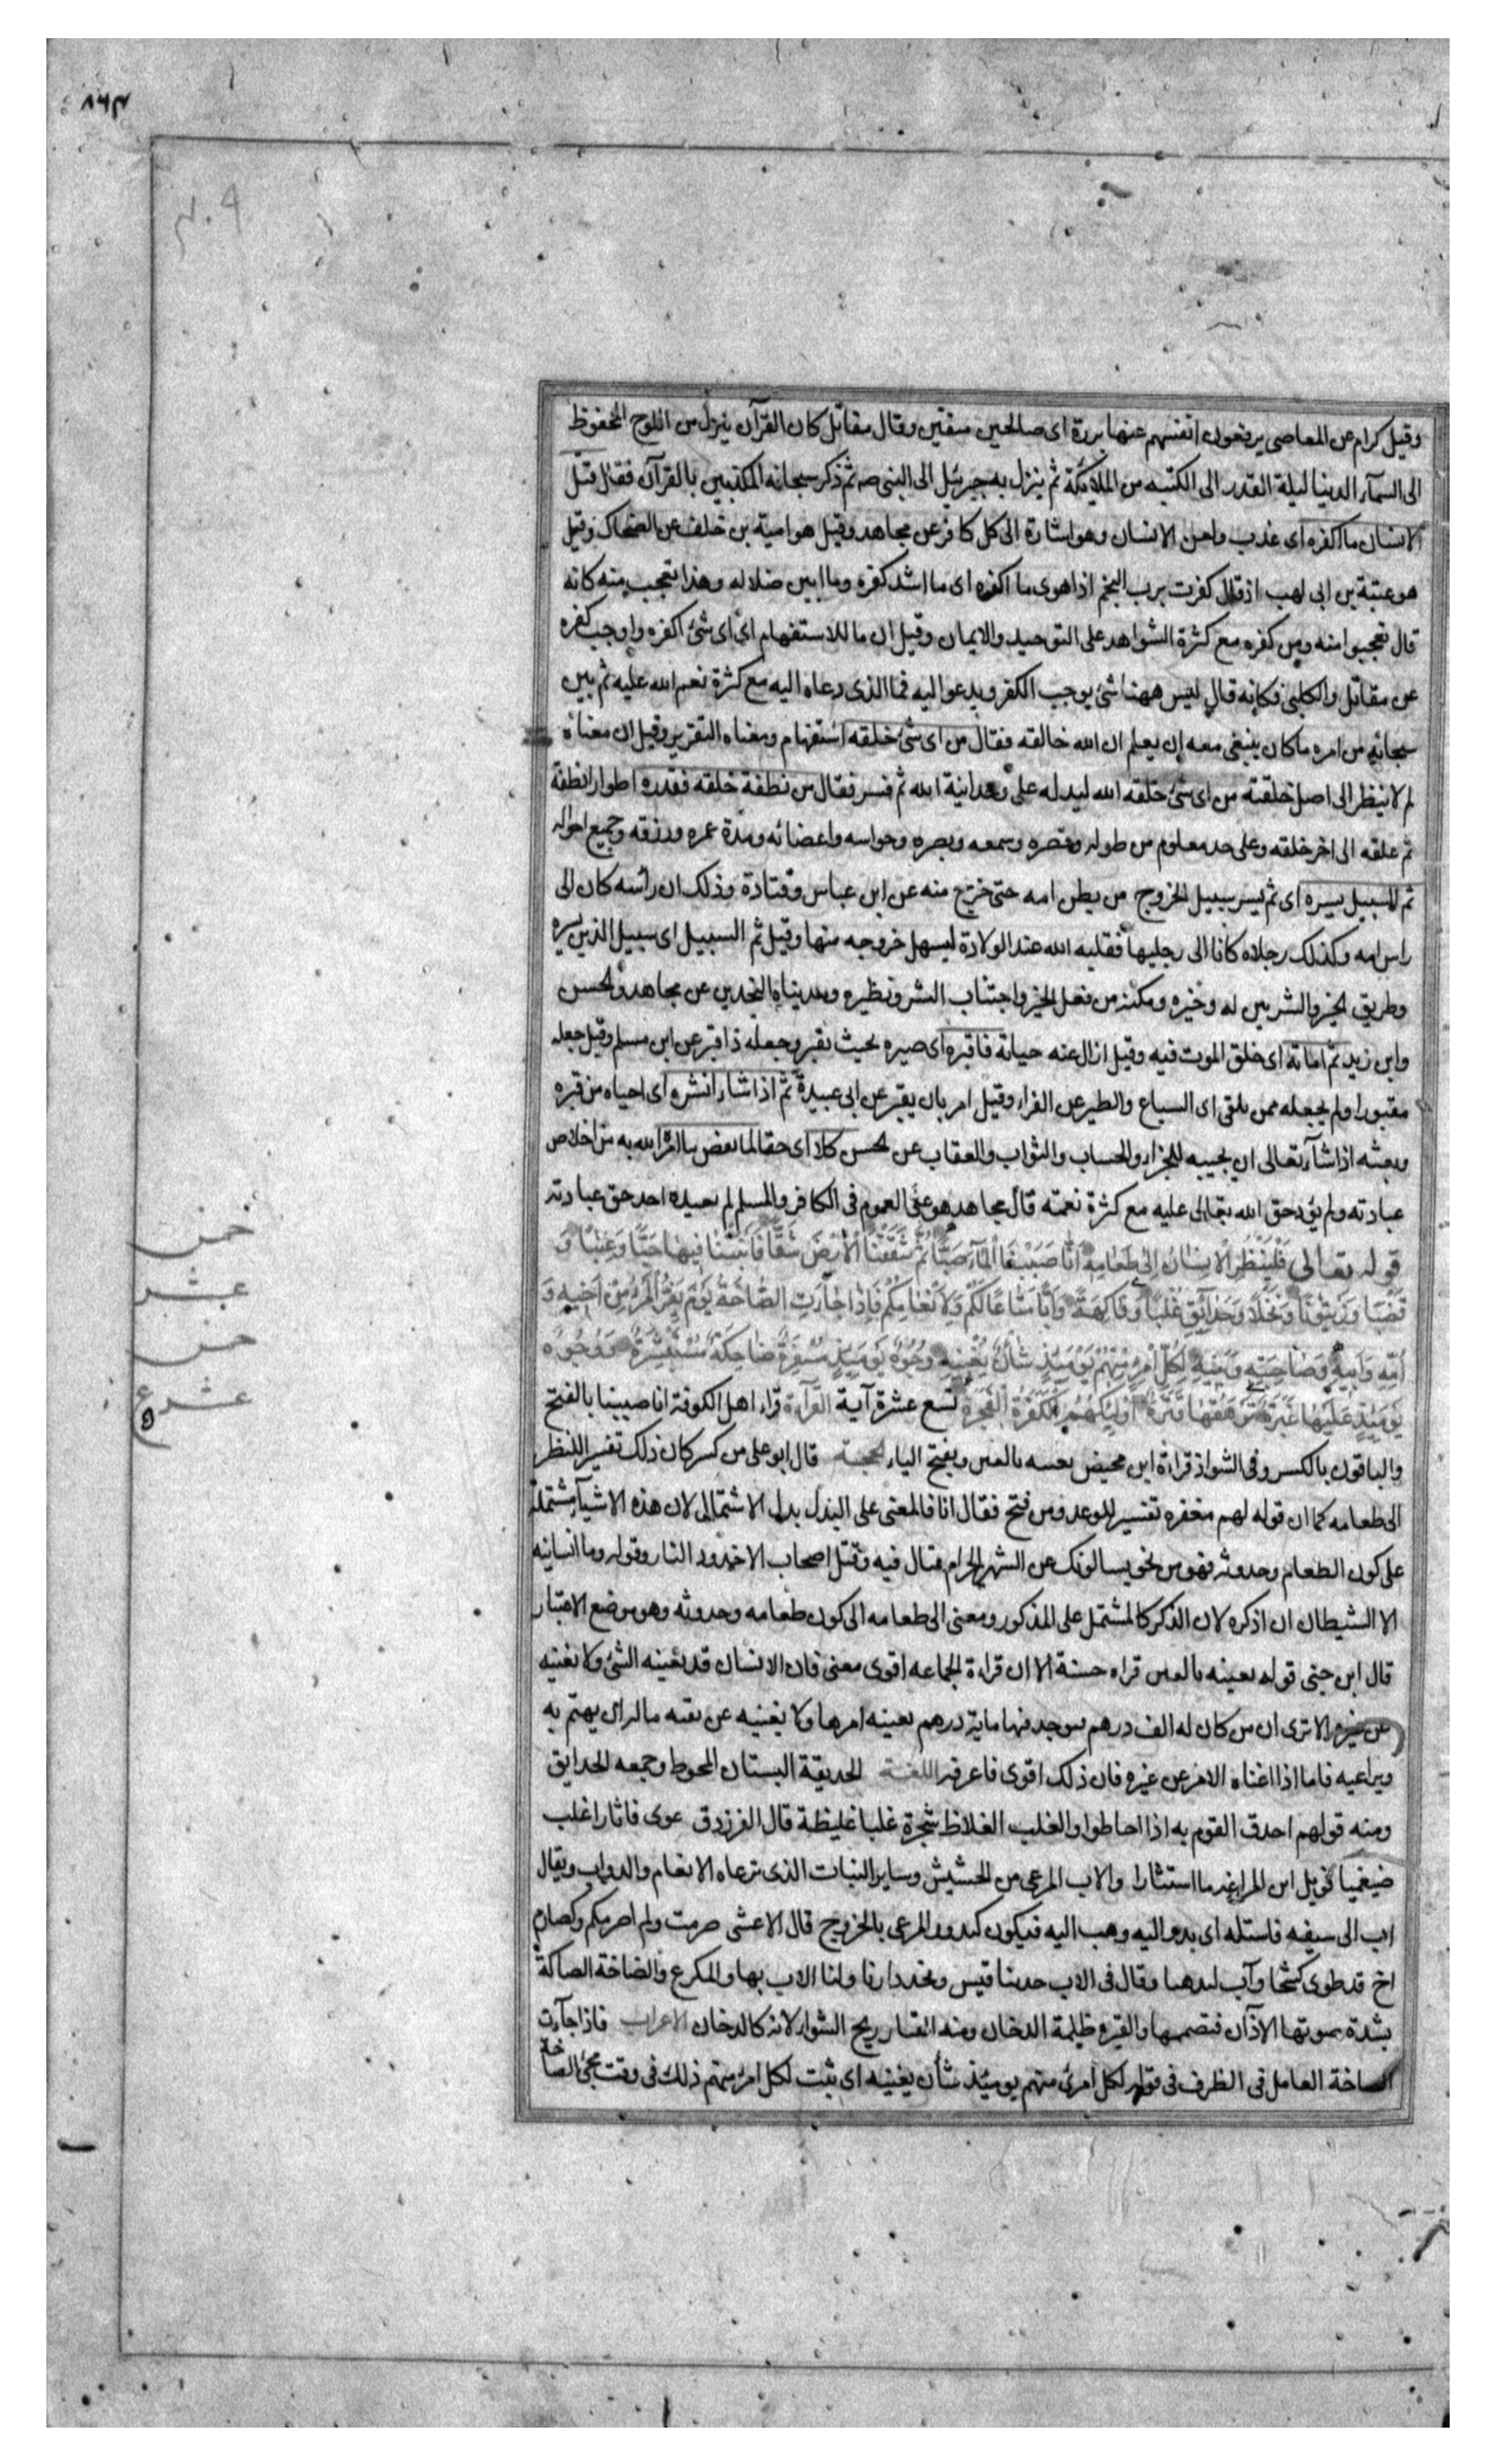 ٨٦٣
٣٠٩
وقيل كرام عن المعاصى يرفعون انفسهم عنها بررة اى صالحين متقين وقال مقاتل كان القرآن ينزل من اللوح المحفوظ
الى السمآء الدنيا ليلة القدر الى الكتبه من الملايكة ثم ينزل به جبرئيل الى النبى صه ثم ذكر سبحانه المكذبين بالقرآن فقال قتل
الانسان ما اكفره اى عذب ولعن الانسان وهو اشارة الى كل كافر عن مجاهد وقيل هو امية بن خلف عن الضحاك وقيل
هو عتبة بن ابى لهب اذ قال كفرت برب النجم اذا هوى ما اكفره اى ما اشد كفره وما ابين ضلاله وهذا تعجب منه كانه
قال تعجبوا منه ومن كفره مع كثرة الشواهد على التوحيد والايمان وقيل ان ما للاستفهام اى اى شئ اكفره واوجب كفره
عن مقاتل والكلبى فكانه قال ليس ههنا شئ يوجب الكفر ويدعو اليه فما الذى دعاه اليه مع كثرة نعم الله عليه ثم بين
سبحانه من امره ما كان ينبغى معه ان يعلم ان الله خالقه فقال من اى شئ خلقه استفهام ومعناه التقرير وقيل ان معناه
لم لا ينظر الى اصل خلقته من اى شئ خلقه الله ليدله على وحدانية الله ثم فسر فقال من نطفة خلقه فقدره اطوارا نطفة
ثم علقه الى اخر خلقه وعلى حد معلوم من طوله وقصره وسمعه وبصره وحواسه واعضائه ومدة عمره ورزقه وجميع احواله
ثم السبيل يسره اى ثم يسر سبيل الخروج من بطن امه حتى خرج منه عن ابن عباس وقتادة وذلك ان راسه كان الى
راس امه وكذلك رجلاه كانا الى رجليها فقلبه الله عند الولادة ليسهل خروجه منها وقيل ثم السبيل اى سبيل الذين يسره
وطريق الخير والشر بين له وخيره ومكنه من فعل الخير واجتناب الشر ونظيره وهديناه النجدين عن مجاهد والحسن
وابن زيد ثم اماته اى خلق الموت فيه وقيل ازال عنه حياته فاقبره اى صيره بحيث يقبر وجعله ذا قبر عن ابن مسلم وقيل جعله
مقبورا ولم يجعله ممن يلقى اى السباع والطير عن الفراء وقيل امر بان يقبر عن ابى عبيدة ثم اذا شاء انشره اى احياه من قبره
وبعثه اذا شآء تعالى ان يحييه للجزاء والحساب والثواب والعقاب عن الحسن كلا اى حقا لما يقض ما امره الله به من اخلاص
عبادته ولم يؤد حق الله تعالى عليه مع كثرة نعمته قال مجاهد هو على العموم فى الكافر والمسلم لم يعبده احد حق عبادته
قوله تعالى فَلْيَنْظُرِ الْاِنْسَانُ اِلٰى طَعَامِهِ اَنَّا صَبَبْنَا الْمَآءَ صَبًّا ثُمَّ شَقَقْنَا الْاَرْضَ شَقًّا فَاَنْبَتْنَا فِيهَا حَبًّا وَعِنَبًا وَ
قَضْبًا وَزَيْتُونًا وَنَخْلًا وَحَدَآئِقَ غُلْبًا وَفَاكِهَةً وَاَبًّا مَتَاعًا لَكُمْ وَلِاَنْعَامِكُمْ فَاِذَا جَآءَتِ الصَّاخَّةُ يَوْمَ يَفِرُّ الْمَرْءُ مِنْ اَخِيهِ وَ
اُمِّهِ وَاَبِيهِ وَصَاحِبَتِهِ وَبَنِيهِ لِكُلِّ امْرِئٍ مِنْهُمْ يَوْمَئِذٍ شَأْنٌ يُغْنِيهِ وُجُوهٌ يَوْمَئِذٍ مُسْفِرَةٌ ضَاحِكَةٌ مُسْتَبْشِرَةٌ وَوُجُوهٌ
يَوْمَئِذٍ عَلَيْهَا غَبَرَةٌ تَرْهَقُهَا قَتَرَةٌ اُولٰئِكَ هُمُ الْكَفَرَةُ الْفَجَرَةُ تسع عشرة آية القرآءة قراء اهل الكوفة انا صببنا بالفتح
والباقون بالكسر وفى الشواذ قراءة ابن محيض يعنيه بالعين وبفتح الياء الحجة قال ابو على من كسر كان ذلك تفسير اللنظر
الى طعامه كما ان قوله لهم مغفره تفسير للوعد ومن فتح فقال انا فالمعنى على البدل بدل الاشتمالى لان هذه الاشيآء مشتملة
على كون الطعام وحدوثه فهو من نحو يسالونك عن الشهر الحرام قتال فيه وقتل اصحاب الاخدود النار وقوله وما انسانيه
الا الشيطان ان اذكره لان الذكر كالمشتمل على المذكور ومعنى الى طعامه الى كون طعامه وحدوثه وهو موضع الاعتبار
قال ابن جنى قوله يعينه بالعين قراه حسنة الا ان قراءة الجماعه اقوى معنى فان الانسان قد يعنيه الشئ ولا يغنيه
عن غيره الا ترى ان من كان له الف درهم يوجد منها ماية درهم يعينه امرها ولا يغنيه عن بقته مالراى يهتم به
ويراعيه فاما اذا اغناه الامر عن غيره فان ذلك اقوى فاعرفه اللغة الحديقة البستان المحوط وجمعه الحدايق
ومنه قولهم احدق القوم به اذا احاطوا والغلب الغلاظ شجرة غلبا غليظة قال الفرزدق عوى فاثار اغلب
ضيغميا فويل ابن المراغه ما استثارا والاب المرعى من الحشيش وساير النبات الذى ترعاه الانعام والدواب ويقال
اب الى سيفه فاستله اى بدو اليه وهب اليه فيكون كبدور المرعى بالخروج قال الاعشى صرمت ولم اصرمكم وكصارم
اخ قد طوى كشحا وآب ليذهبا وقال فى الاب جدنا قيس ونجد دارنا ولنا الاب بها والمكرع والصاخة الصاكة
بشدة صوتها الآذان فتصمها والقتره ظلمة الدخان ومنه القتار ريح الشواء لانه كالدخان الاعراب فاذا جآءت
الصاخة العامل فى الظرف فى قوله لكل امرئ منهم يومئذ شأن يغنيه اى ثبت لكل امرئ منهم ذلك فى وقت مجئ الصاخة
خمس
عشر
خمس
عشر
ع